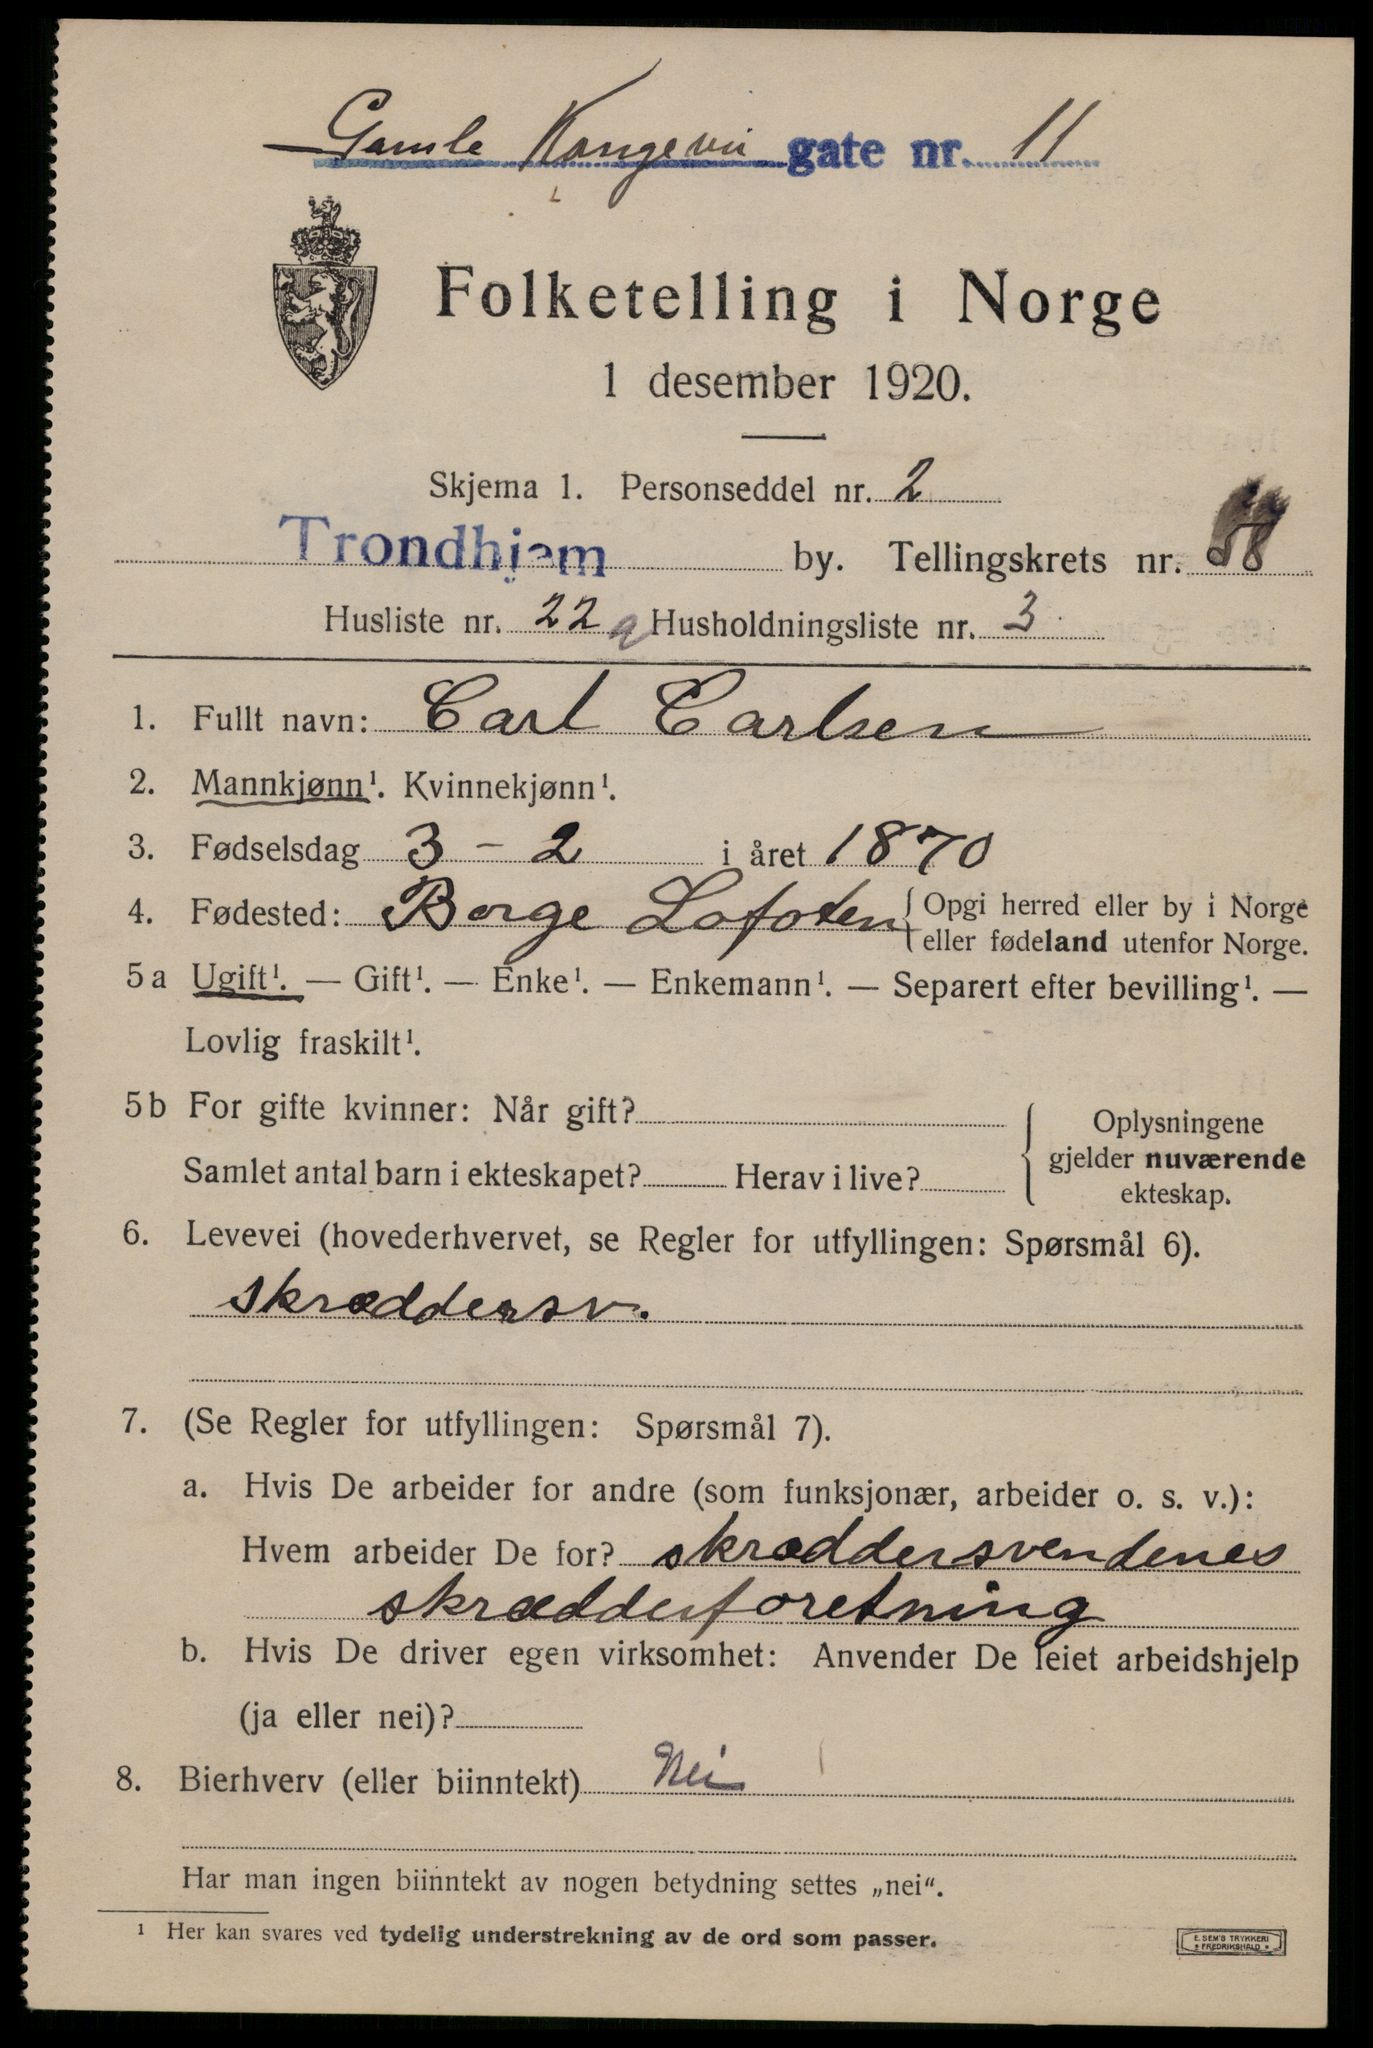 Gamle Kongevei gate nr. 11
Folketelling i Norge
1 desember 1920.
Skjema 1. Personseddel nr. 2
Trondhjem by. Tellingskrets nr. 58
Husliste nr. 22 a Husholdningsliste nr. 3
1. Fullt navn: Carl Carlsen
2. Mannkjønn¹. Kvinnekjønn¹.
3. Fødselsdag 3 - 2 i året 1870
4. Fødested: Borge Lofoten { Opgi herred eller by i Norge
eller fødeland utenfor Norge.
5a Ugift¹. — Gift¹. — Enke¹. — Enkemann¹. — Separert efter bevilling¹. —
Lovlig fraskilt¹.
5b For gifte kvinner: Når gift?
Samlet antal barn i ekteskapet? Herav i live?
{ Oplysningene
gjelder nuværende
ekteskap.
6. Levevei (hovederhvervet, se Regler for utfyllingen: Spørsmål 6).
skræddersv.
7. (Se Regler for utfyllingen: Spørsmål 7).
a. Hvis De arbeider for andre (som funksjonær, arbeider o. s. v.):
Hvem arbeider De for? skræddersvendenes
skrædderforetning
b. Hvis De driver egen virksomhet: Anvender De leiet arbeidshjelp
(ja eller nei)?
8. Bierhverv (eller biinntekt) Nei
Har man ingen biinntekt av nogen betydning settes „nei".
¹ Her kan svares ved tydelig understrekning av de ord som passer.
E. SEM'S TRYKKERI
* FREDRIKSHALD *